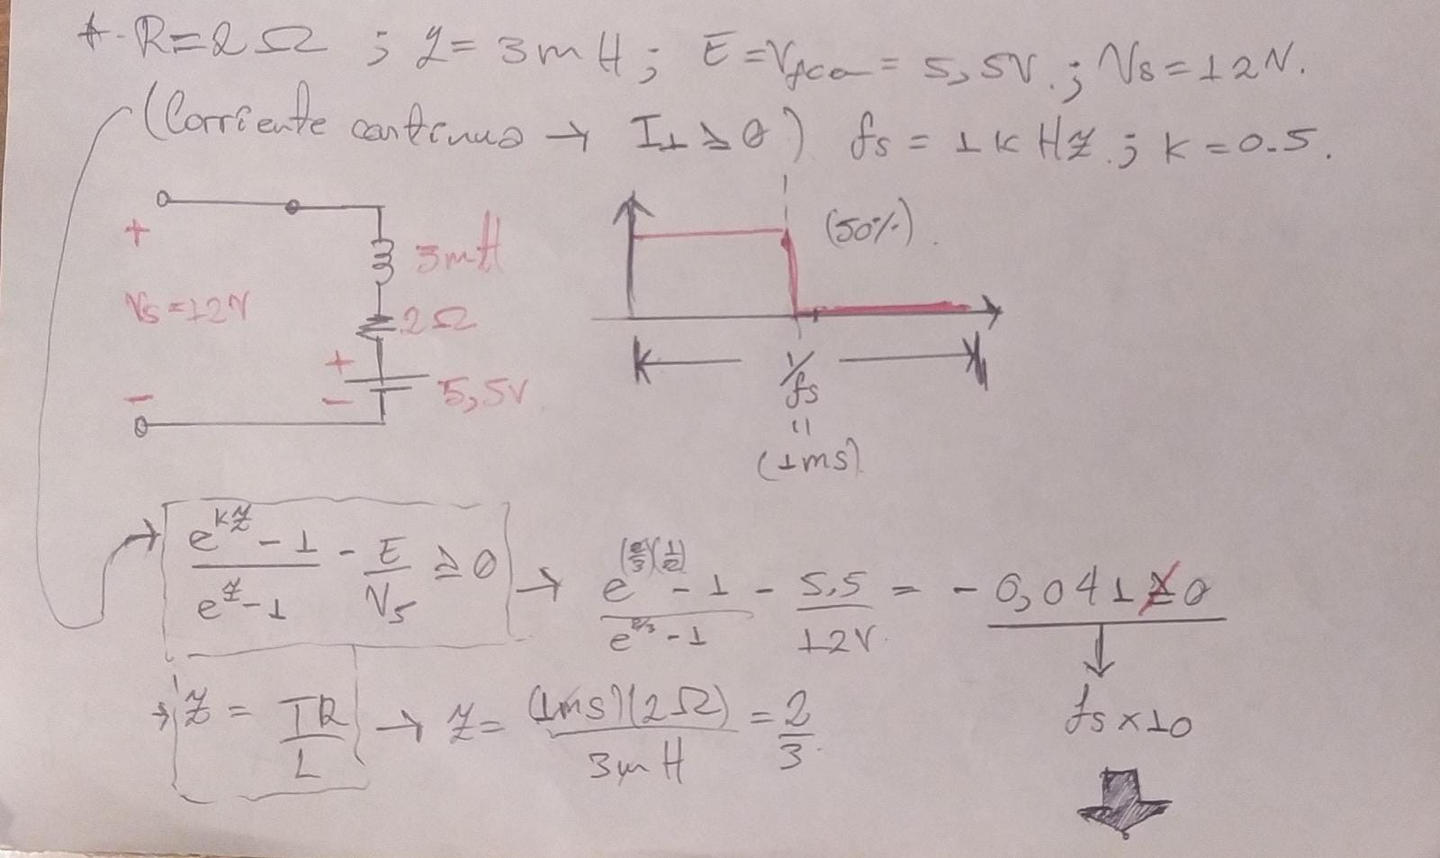 1- R=2Ω ; L= 3mH; E=Vfcem= 5,5V.; Vs=12V.
(Corriente continua → I1≥0) fs = 1kHz.; k=0.5.
(50%).
+
3mH
Vs=12V
2Ω
+
-
5,5V
-
1/fs
=
(1ms)
→ (e^(kz) - 1)/(e^z - 1) - E/Vs ≥ 0 → (e^((2/3)(1/2)) - 1)/(e^(2/3) - 1) - 5,5/12V = - 0,041 ≱ 0
→ z = TR/L → z = (1ms)(2Ω)/3mH = 2/3
↓
fs x10